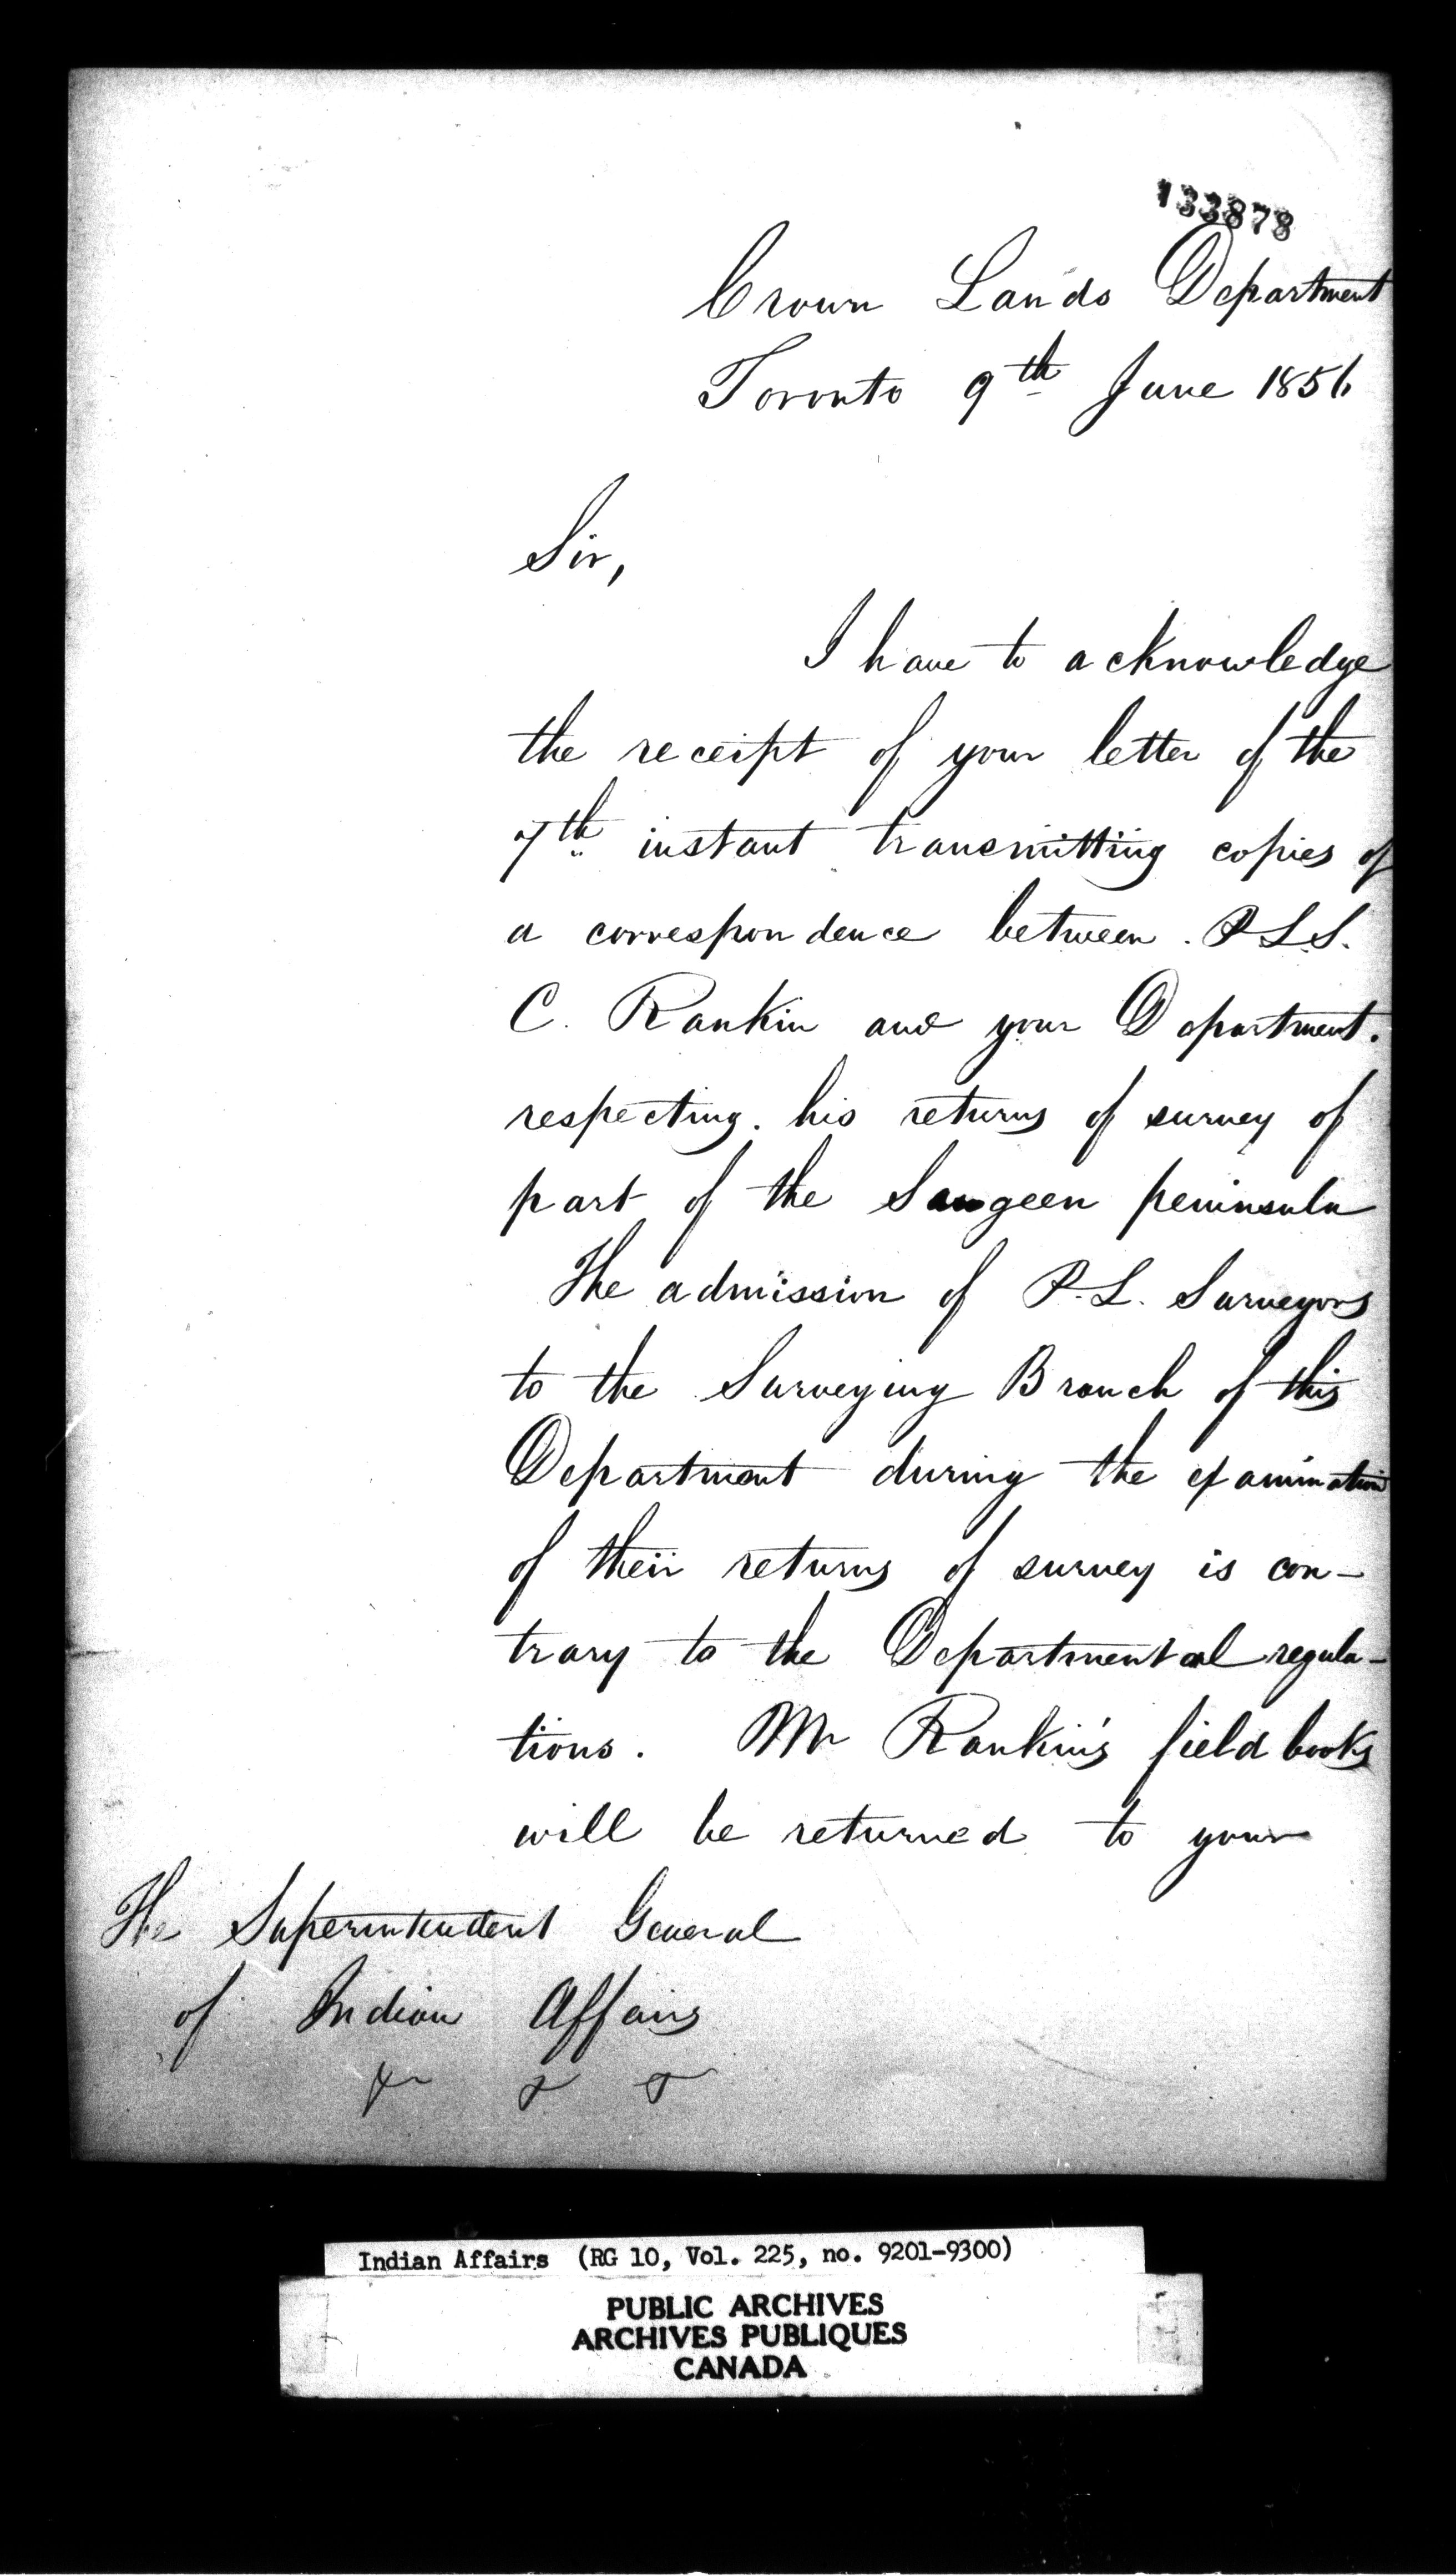 133878
Crown Lands Department
Toronto 9th June 1856
Sir,
I have to acknowledge
the receipt of your letter of the
7th instant transmitting copies of
a correspondence between P.L.S.
C. Rankin and your Department.
respecting. his returns of survey of
part of the Saugeen peninsula
The admission of P.L. Surveyors
to the Surveying Branch of this
Department during the examination
of their returns of survey is con-
trary to the Departmental regula-
tions. Mr Rankin's field books
will be returned to your
The Superintendent General
of Indian Affairs
Indian Affairs (RG 10, Vol. 225, no. 9201-9300)
PUBLIC ARCHIVES
ARCHIVES PUBLIQUES
CANADA